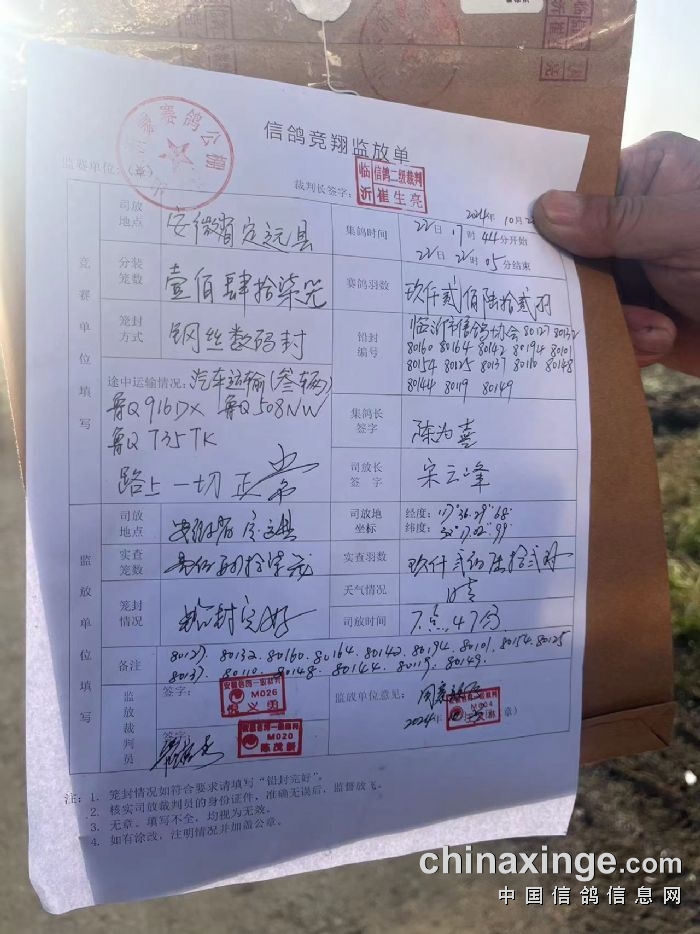 信鸽竞翔监放单
监赛单位:(章)
裁判长签字:
信鸽二级裁判
临沂 崔生亮
2024年 10月
竞赛单位填写
司放地点 安徽省定远县
集鸽时间 22日 17时 44分开始
22日 22时 05分结束
分装笼数 壹佰肆拾柒笼
赛鸽羽数 玖仟贰佰陆拾贰羽
笼封方式 钢丝数码封
铅封编号 临沂市信鸽协会 80127 80132
80160 80164 80142 80194 80101
80154 80125 80137 80110 80148
80144 80119 80149
途中运输情况: 汽车运输(叁辆)
鲁Q916DX 鲁Q508NW
鲁Q735TK
路上一切正常
集鸽长签字 陈为喜
司放长签字 宋云峰
监放单位填写
司放地点 安徽省定远县
司放地坐标 经度: 117°36.29"68
纬度: 32°17.02"99
实查笼数
实查羽数 玖仟贰佰陆拾贰羽
笼封情况 铅封完好
天气情况 晴
司放时间 7点47分
备注 80127. 80132. 80160. 80164. 80142. 80194. 80101. 80154. 80125
80137. 80110. 80148. 80144. 80119. 80149.
监放裁判员
签字:
M026
签字:
M020
陈茂
监放单位意见:
M004
2024年
章)
注: 1. 笼封情况如符合要求请填写“铅封完好”。
2. 核实司放裁判员的身份证件,准确无误后,监督放飞。
3. 无章、填写不全,均视为无效。
4. 如有涂改,注明情况并加盖公章。
chinaxinge.com
中国信鸽信息网